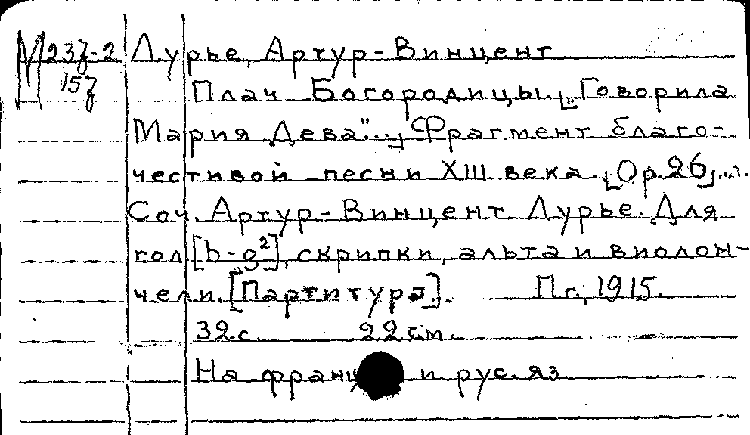 М 23з-2 Лурье, Артур-Винцент
15з Плач Богородицы. „Говорила
Мария Дева"... Фрагмент благо-
честивой песни XIII века. [Ор. 26].
Соч. Артур-Винцент Лурье. Для
гол. [h-g²], скрипки, альта и виолон-
чели. [Партитура]. Пг., 1915.
32 с. 22 см.
На франц и рус. яз